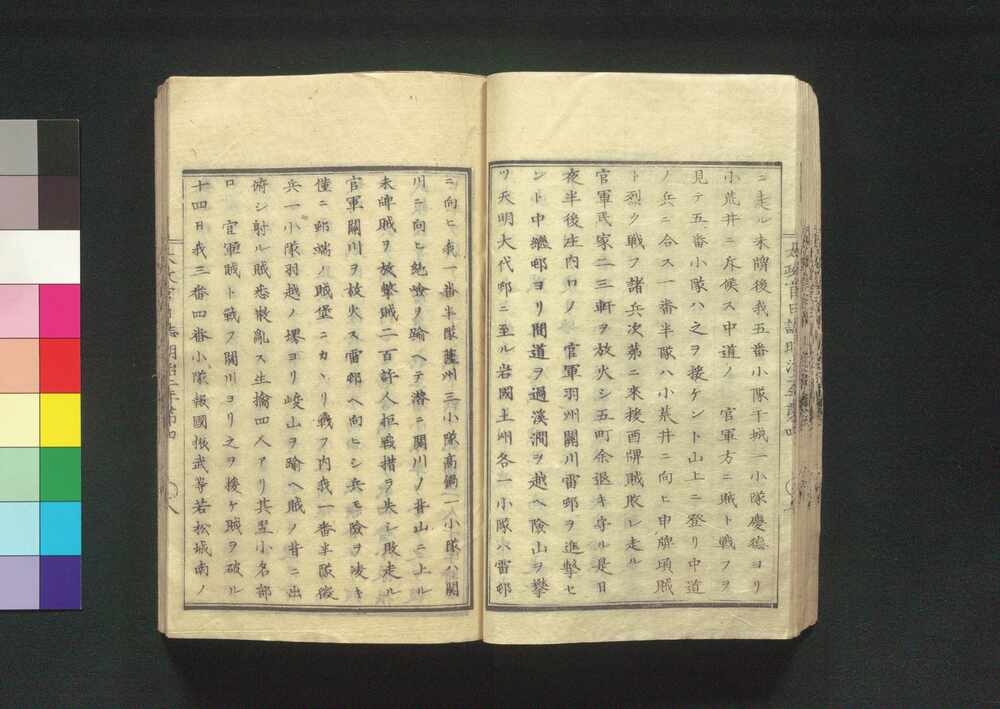 ニ走ル未牌後我五番小隊干城一小隊慶徳ヨリ
小荒井ニ斥候ス中道ノ 官軍方ニ賊ト戦フヲ
見テ五番小隊ハ之ヲ援ケント山上ニ登リ中道
ノ兵ニ合ス一番半隊ハ小荒井ニ向ヒ申牌頃賊
ト烈ク戦フ諸兵次第ニ來援酉牌賊敗レ走ル
官軍民家二三軒ヲ放火シ五町余退キ守ル是日
夜半後庄内口ノ 官軍羽州關川雷邨ヲ進撃セ
ント中繼邨ヨリ間道ヲ過溪澗ヲ越ヘ險山ヲ攀
ツ天明大代邨ニ至ル岩國土州各一小隊ハ雷邨
ニ向ヒ我一番半隊薩州三小隊高鍋一小隊ハ關
川ニ向ヒ絶嶮ヲ踰ヘテ潜ニ關川ノ背山ニ上ル
未牌賊ヲ放撃賊二百許人拒戦措ヲ失シ敗走ル
官軍關川ヲ放火ス雷邨ヘ向ヒシ兵モ險ヲ凌キ
僅ニ邨端ノ賊堡ニカヽリ戦フ内我一番半隊徴
兵一小隊羽越ノ堺ヨリ峻山ヲ踰ヘ賊ノ背ニ出
俯シ射ル賊悉散亂ス生擒四人アリ其翌小名部
口 官軍賊ト戦フ關川ヨリ之ヲ援ケ賊ヲ破ル
十四日我三番四番小隊報國振武等若松城南ノ
太政官日誌明治二年第四